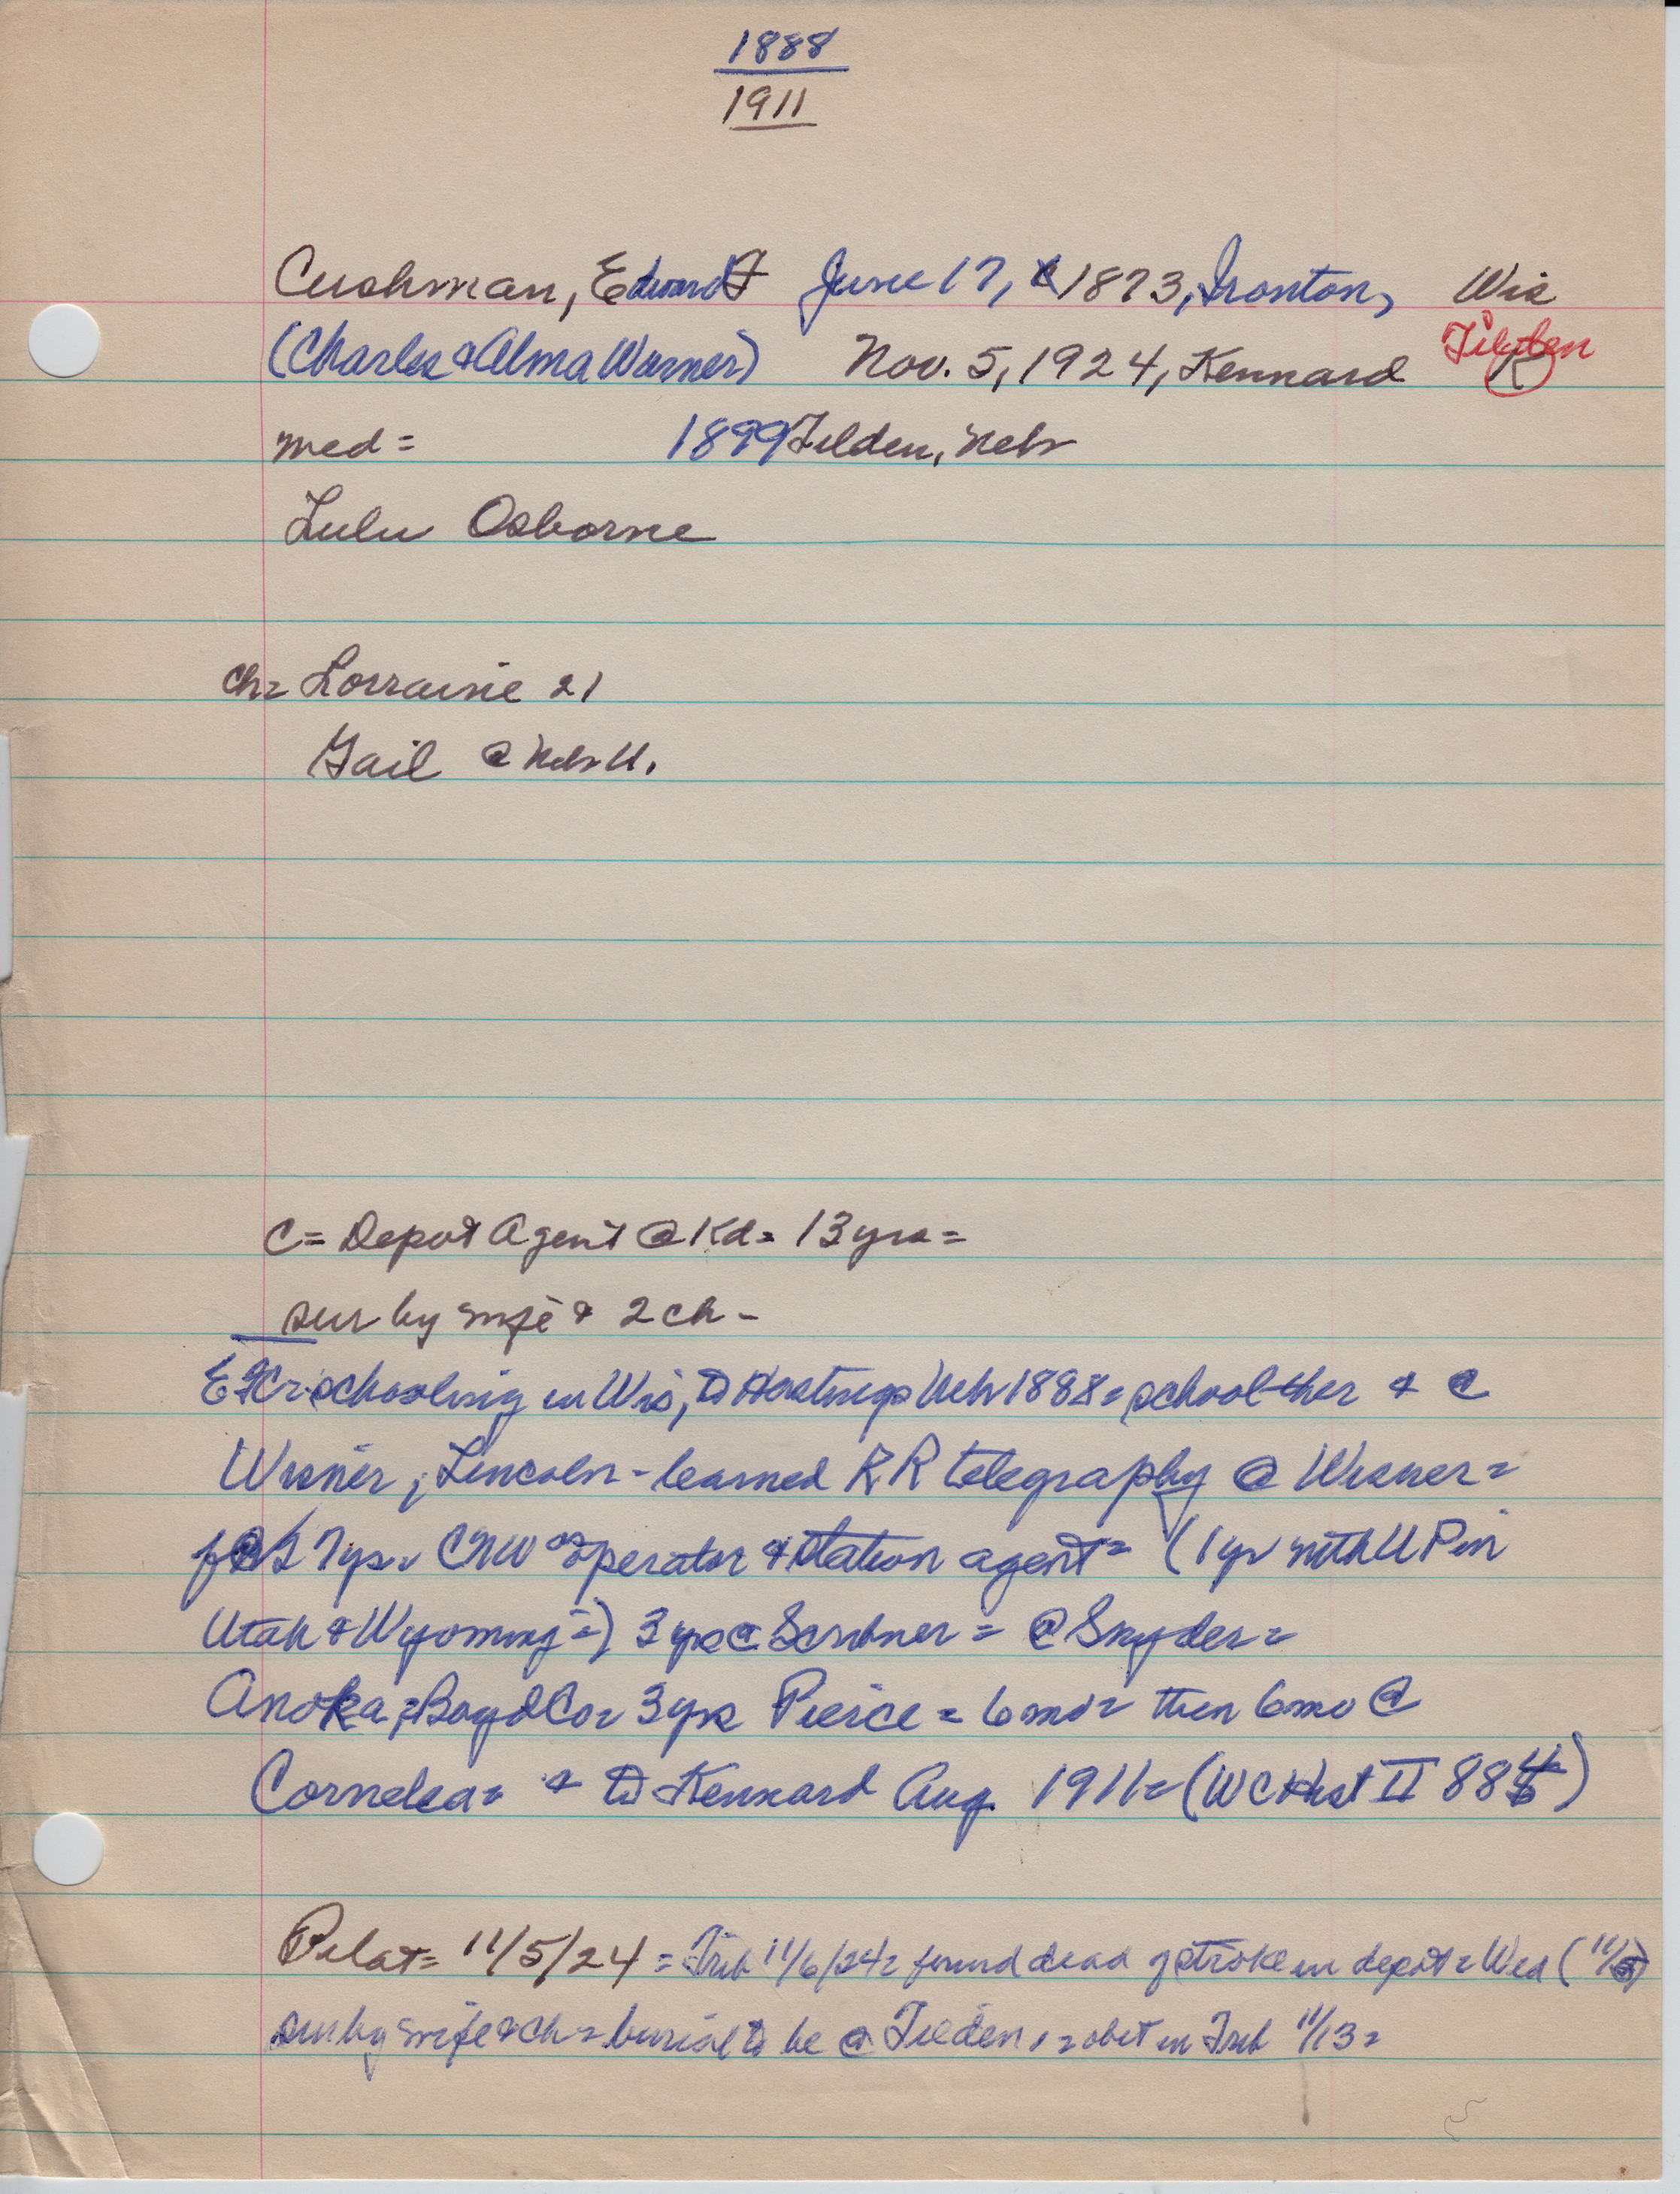 1888
1911
Cushman, Edward F June 17, 1873, Ironton, Wis
(Charles & Alma Warner) Nov. 5, 1924, Kennard Tilden
med = 1899 Tilden, Nebr
Lulu Osborne
ch= Lorraine 21
Gail @ Nebr U.
C= Depot Agent @ Kd= 13 yrs=
sur by wife & 2 ch-
EFC= schooling in Wis, to Hastings Nebr 1888= school ther & @
Wisner, Lincoln- learned RR telegraphy @ Wisner=
7 yrs CNW operator & station agent= (1 yr with UP in
Utah & Wyoming=) 3 yrs @ Scribner= @ Snyder=
Anoka, Boyd Co= 3 yrs Pierce= 6 mo= then 6 mo @
Cornelea= & to Kennard Aug. 1911= (WC Hist II 884)
Pilot= 11/5/24 = Trib 11/6/24= found dead of stroke in depot= Wed (11/5)
sur by wife & ch= burial to be @ Tilden,= obit in Trib 11/13=